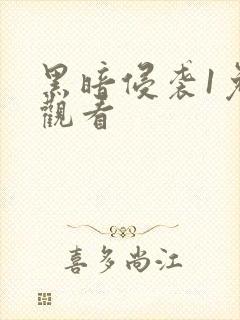 黑暗侵袭1
觀看
喜多尚江